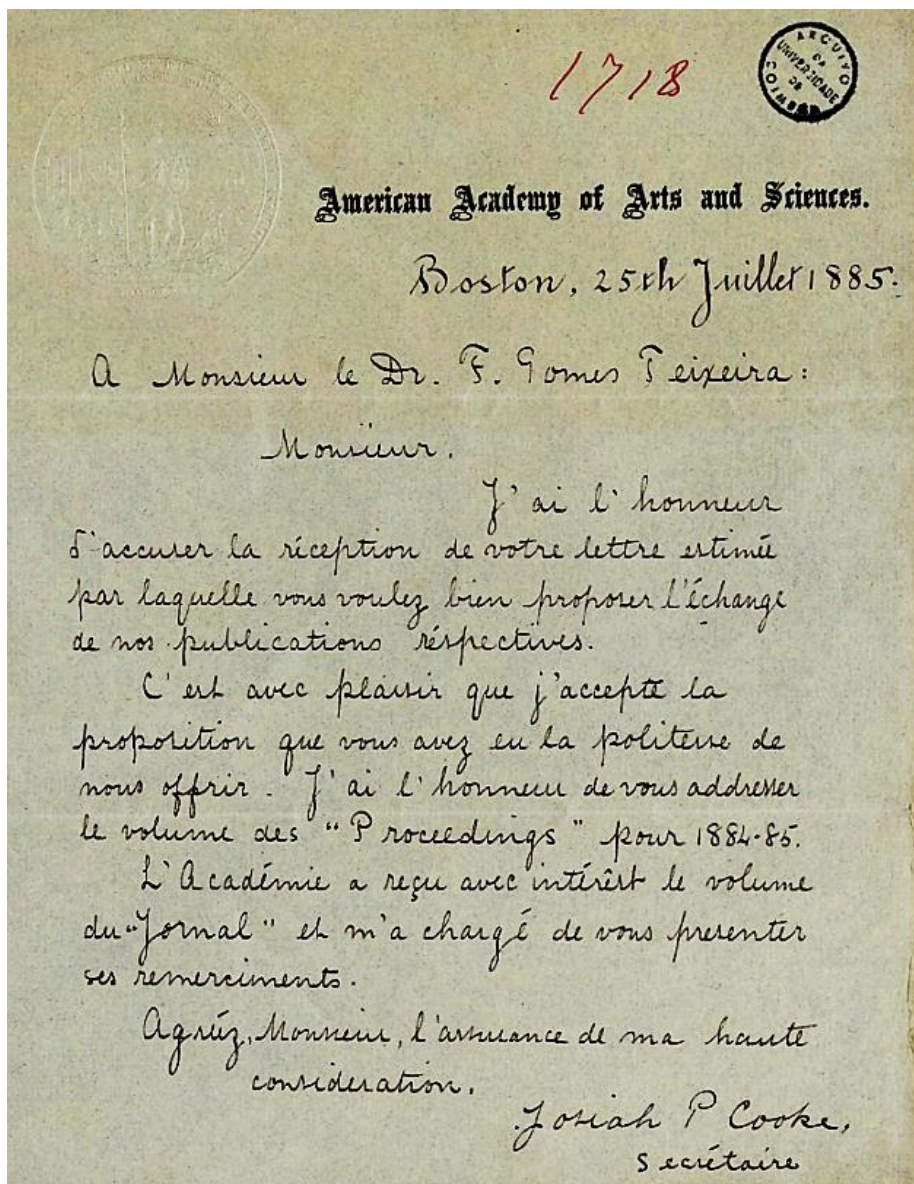 1718
ARQUIVO DA UNIVERSIDADE DE COIMBRA
American Academy of Arts and Sciences.
Boston, 25th Juillet 1885.
A Monsieur le Dr. F. Gomes Teixeira:
Monsieur.
J'ai l'honneur
d'accuser la réception de votre lettre estimée
par laquelle vous voulez bien proposer l'échange
de nos publications réspectives.
C'est avec plaisir que j'accepte la
proposition que vous avez eu la politesse de
nous offrir. J'ai l'honneur de vous addresser
le volume des "Proceedings" pour 1884-85.
L'Académie a reçu avec intérêst le volume
du "Jornal" et m'a chargé de vous presenter
ses remerciments.
Agréez, Monsieur, l'assurance de ma haute
consideration.
Josiah P Cooke,
Secrétaire